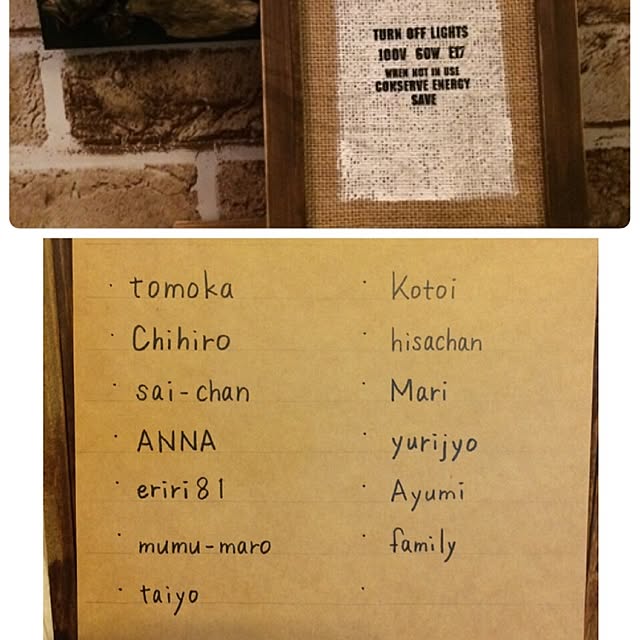 TURN OFF LIGHTS
100V 60W E17
WHEN NOT IN USE
CONSERVE ENERGY
SAVE
· tomoka
· Chihiro
· sai-chan
· ANNA
· eriri81
· mumu-maro
· taiyo
· Kotoi
· hisachan
· Mari
· yurijyo
· Ayumi
· family
·